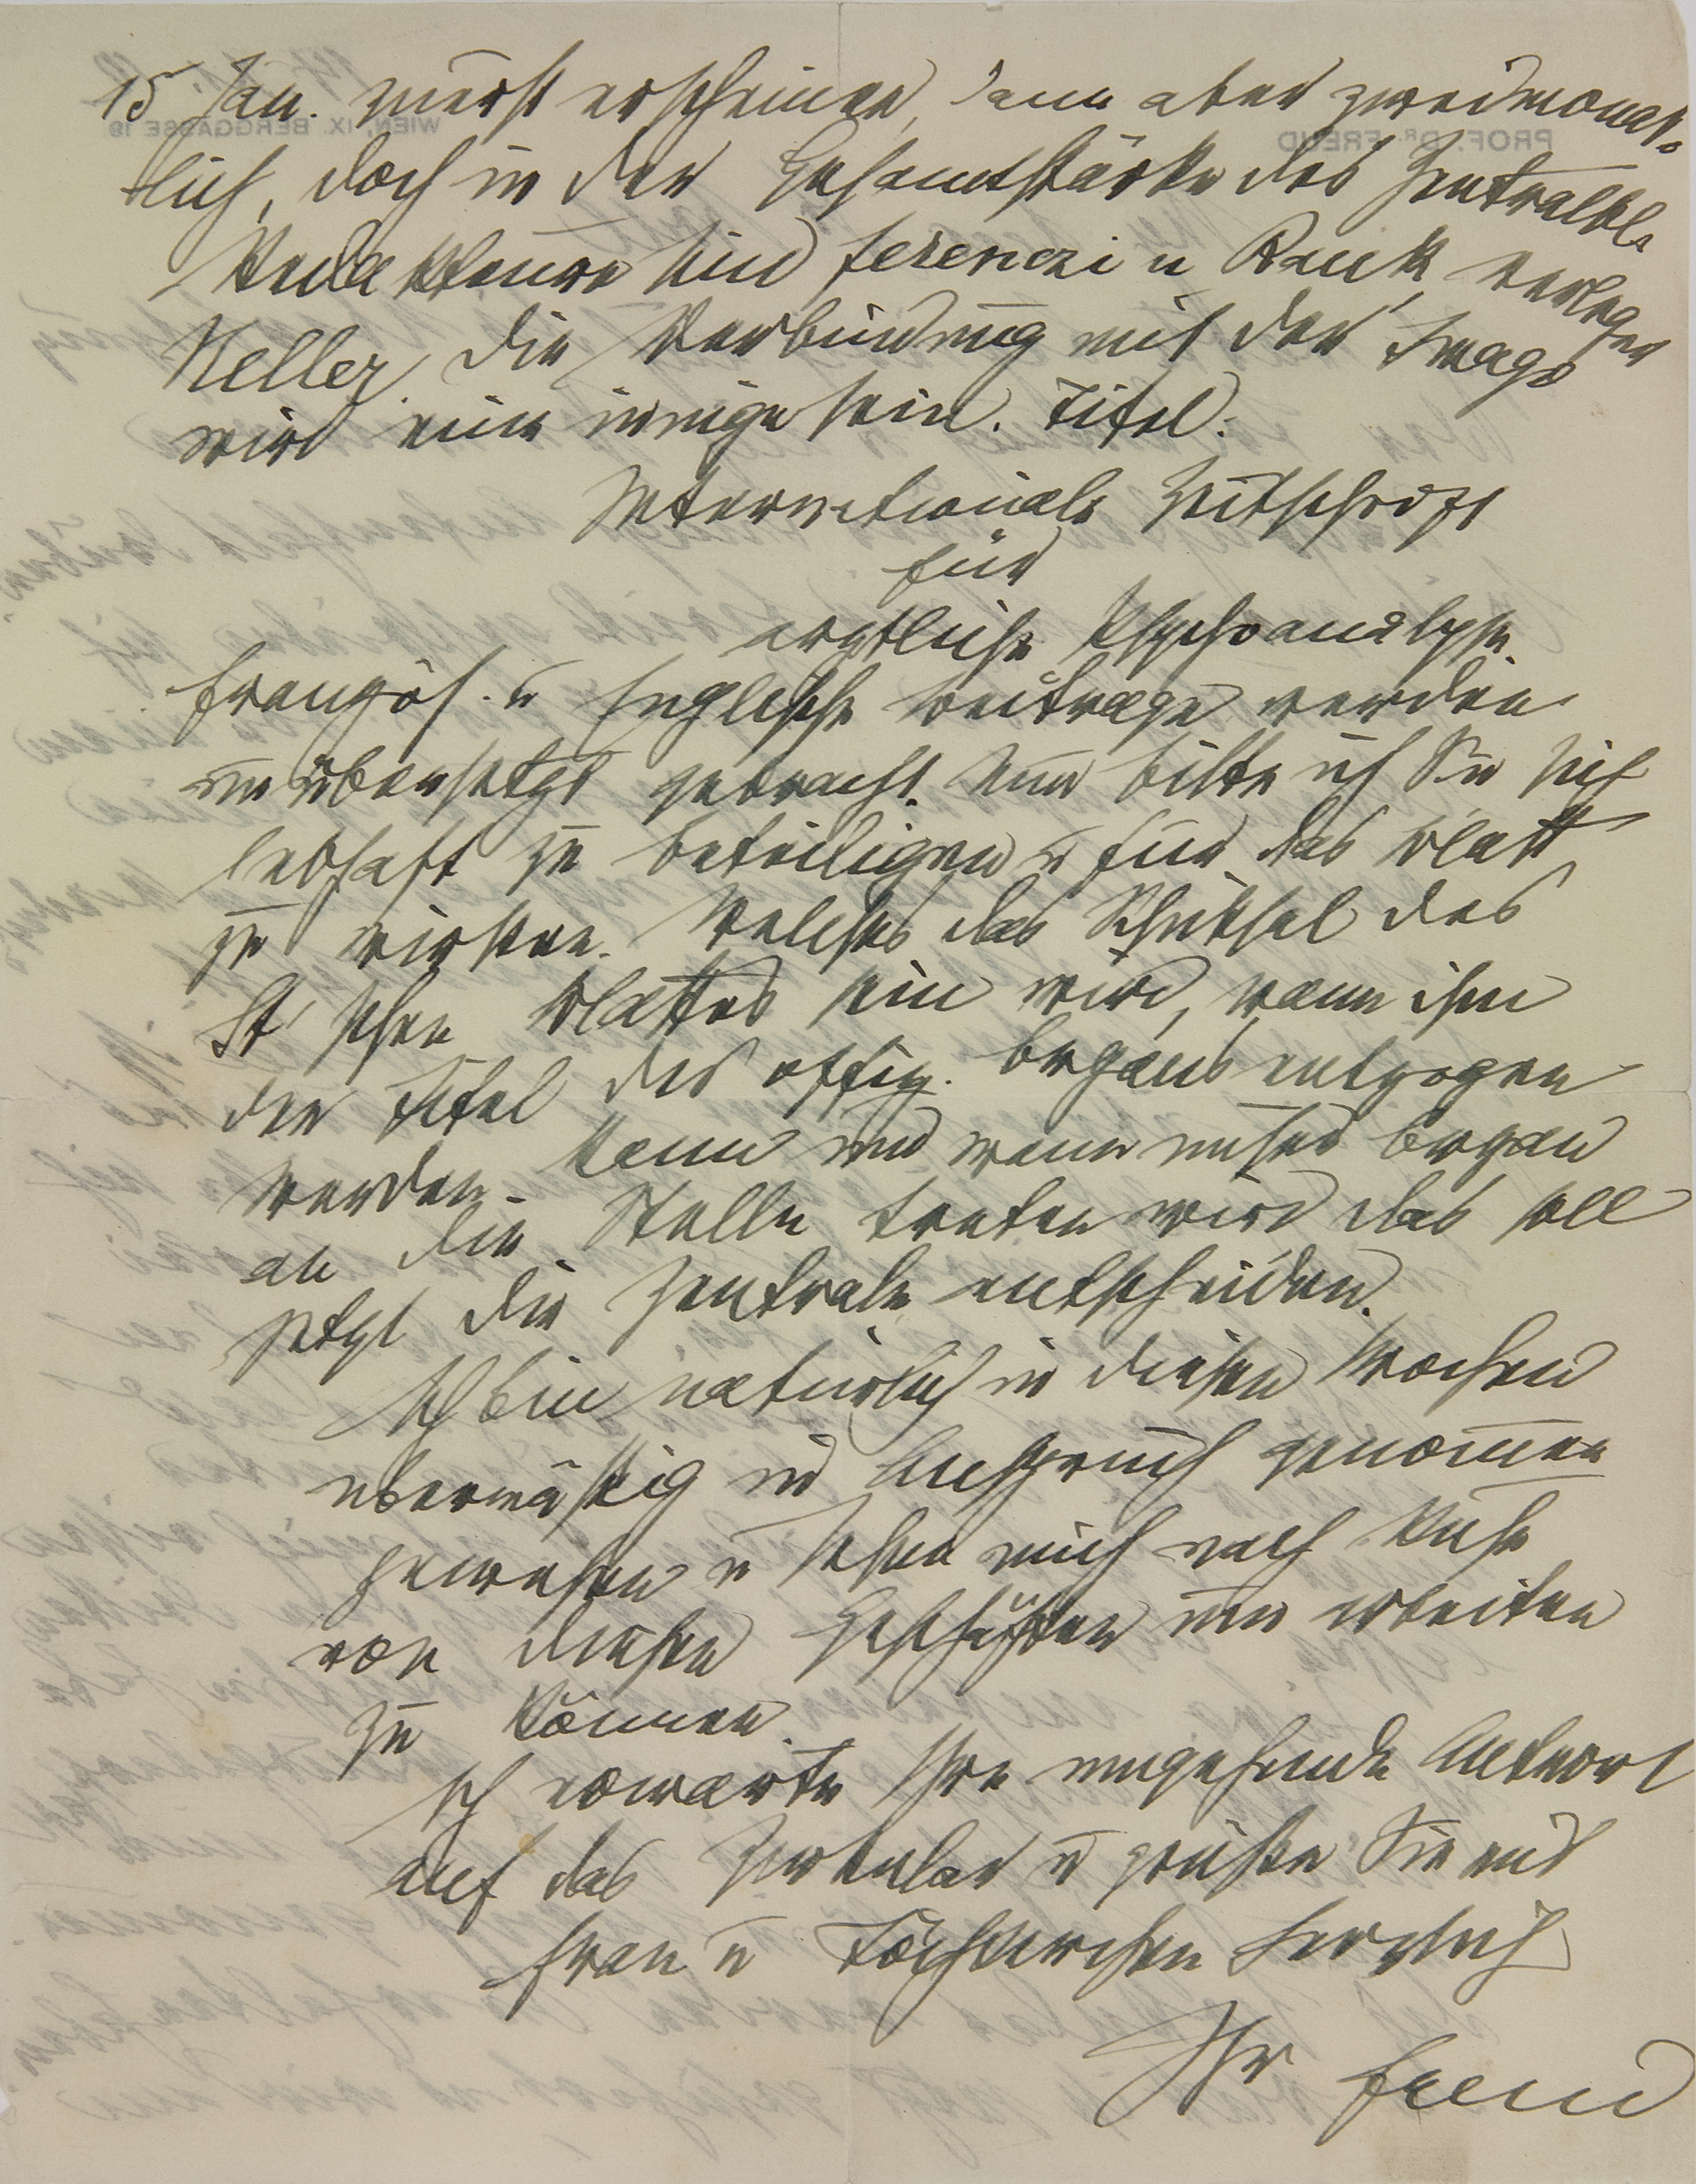 15 Jan. zuerst erscheinen, dann aber zweimonat-
lich, doch in der Gesamtstärke des Zentralbl.
Redakteure sind Ferenczi u Rank, Verleger
Heller, die Verbindung mit der Imago
wird eine innige sein. Titel:
Internationale Zeitschrift
für
ärztliche Psychoanalyse.
Französ. u Englische Beiträge werden
unübersetzt gebracht. Nun bitte ich Sie sich
lebhaft zu beteiligen u für das Blatt
zu wirken. Welches das Schicksal des
St'schen Blattes sein wird, wann ihm
der Titel des offiz. Organs entzogen
werden kann und wann unser Organ
an die Stelle treten wird das soll
jetzt die Zentrale entscheiden.
Ich bin natürlich in diesen Wochen
übermäßig in Anspruch genommen
gewesen u sehne mich nach Ruhe
von diesen Geschäften um arbeiten
zu können.
Ich erwarte Ihre umgehende Antwort
auf das Zirkular u grüße Sie mit
Frau u Töchterchen herzlich
Ihr Freud
PROF. DR. FREUD
WIEN, IX. BERGGASSE 19